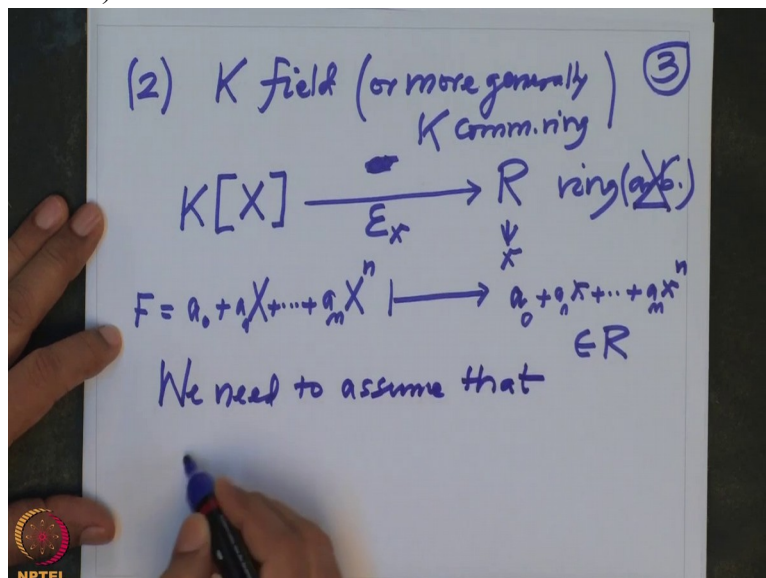 (2) K field (or more generally ③
K comm. ring)
K[X] ⟶ R ring
ε_x x
F = a_0 + a_1X + ··· + a_mX^n ⟼ a_0 + a_1x + ·· + a_mx^n
∈ R
We need to assume that
NPTEL